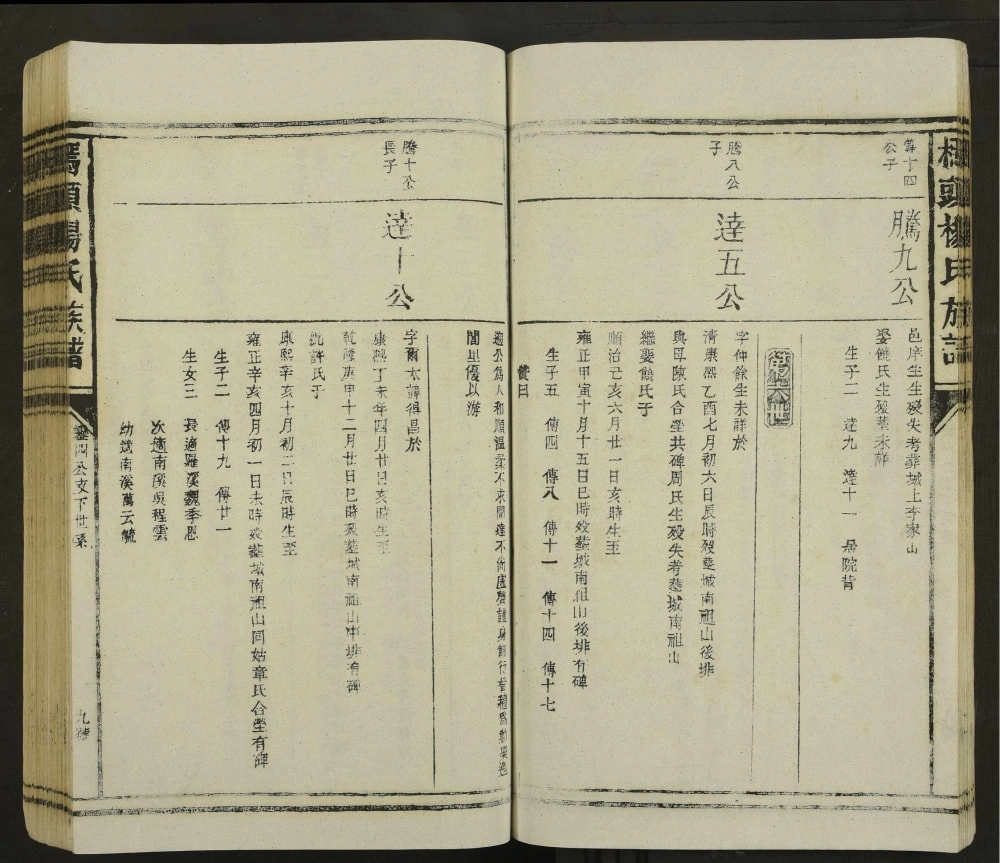 楊氏族譜
騰九公
邑庠生生歿失考葬城上李家山
娶饒氏生歿葬未詳
生子二 達九 達十一 居院背
騰八公
子
達五公
字仲餘生未詳於
清康熙乙酉七月初六日辰時歿葬城南祖山後排
與母陳氏合塋共碑周氏生歿失考葬城南祖山
繼娶饒氏于
順治己亥六月廿一日亥時生至
雍正甲寅十月十五日巳時歿葬城南祖山後排有碑
生子五 傳四 傳八 傳十一 傳十四 傳十七
贊曰
公為人和順溫柔不求聞達不尚
閭里優以游
騰十公
長子
達十公
字爾太諱得昌於
康熙丁未年四月廿日亥時生至
乾隆庚申十二月廿日巳時歿葬城南祖山中排有碑
妣許氏于
康熙辛亥十月初二日辰時生至
雍正辛亥四月初一日未時歿葬城南祖山同姑章氏合塋有碑
生子二 傳十九 傳廿一
生女三 長適羅溪魏季恩
次適南溪吳程雲
幼適南溪萬云毓
楊氏族譜
公支下世系
九